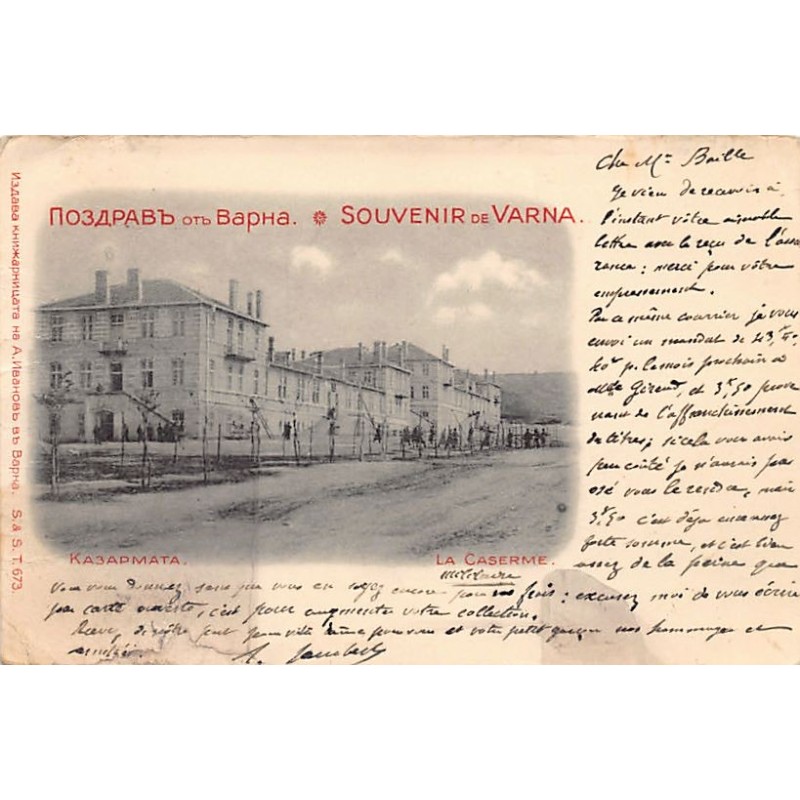 ПОЗДРАВЪ отъ Варна. ❋ SOUVENIR DE VARNA.
Издава книжарницата на А. Ивановъ въ Варна. S. & S. T. 673
КАЗАРМАТА.
LA CASERME.
militaire
Cher Mr Baille
Je viens de recevoir à
l'instant vôtre aimable
lettre avec le reçu de l'assu
rance; merci pour vôtre
empressement.
Par ce même courrier je vous
envoi un mandat de 43,50
40f p. le mois prochain à
Mlle Géraud, et 3f,50 prove
nant de l'affranchissement
de titres; si cela vous avais
peu coûté je n'aurais pas
osé vous le rendre, mais
3f50 c'est déjà une assez
forte somme, et c'est bien
assez de la peine que
vous vous donnez sans que vous en soyez encore pour vos frais; excusez moi de vous écrire
par carte ouverte, c'est pour augmenter votre collection.
Recevez, de nôtre part pour votre dame pour vous et votre petit garçon nos hommages et
amitiés.